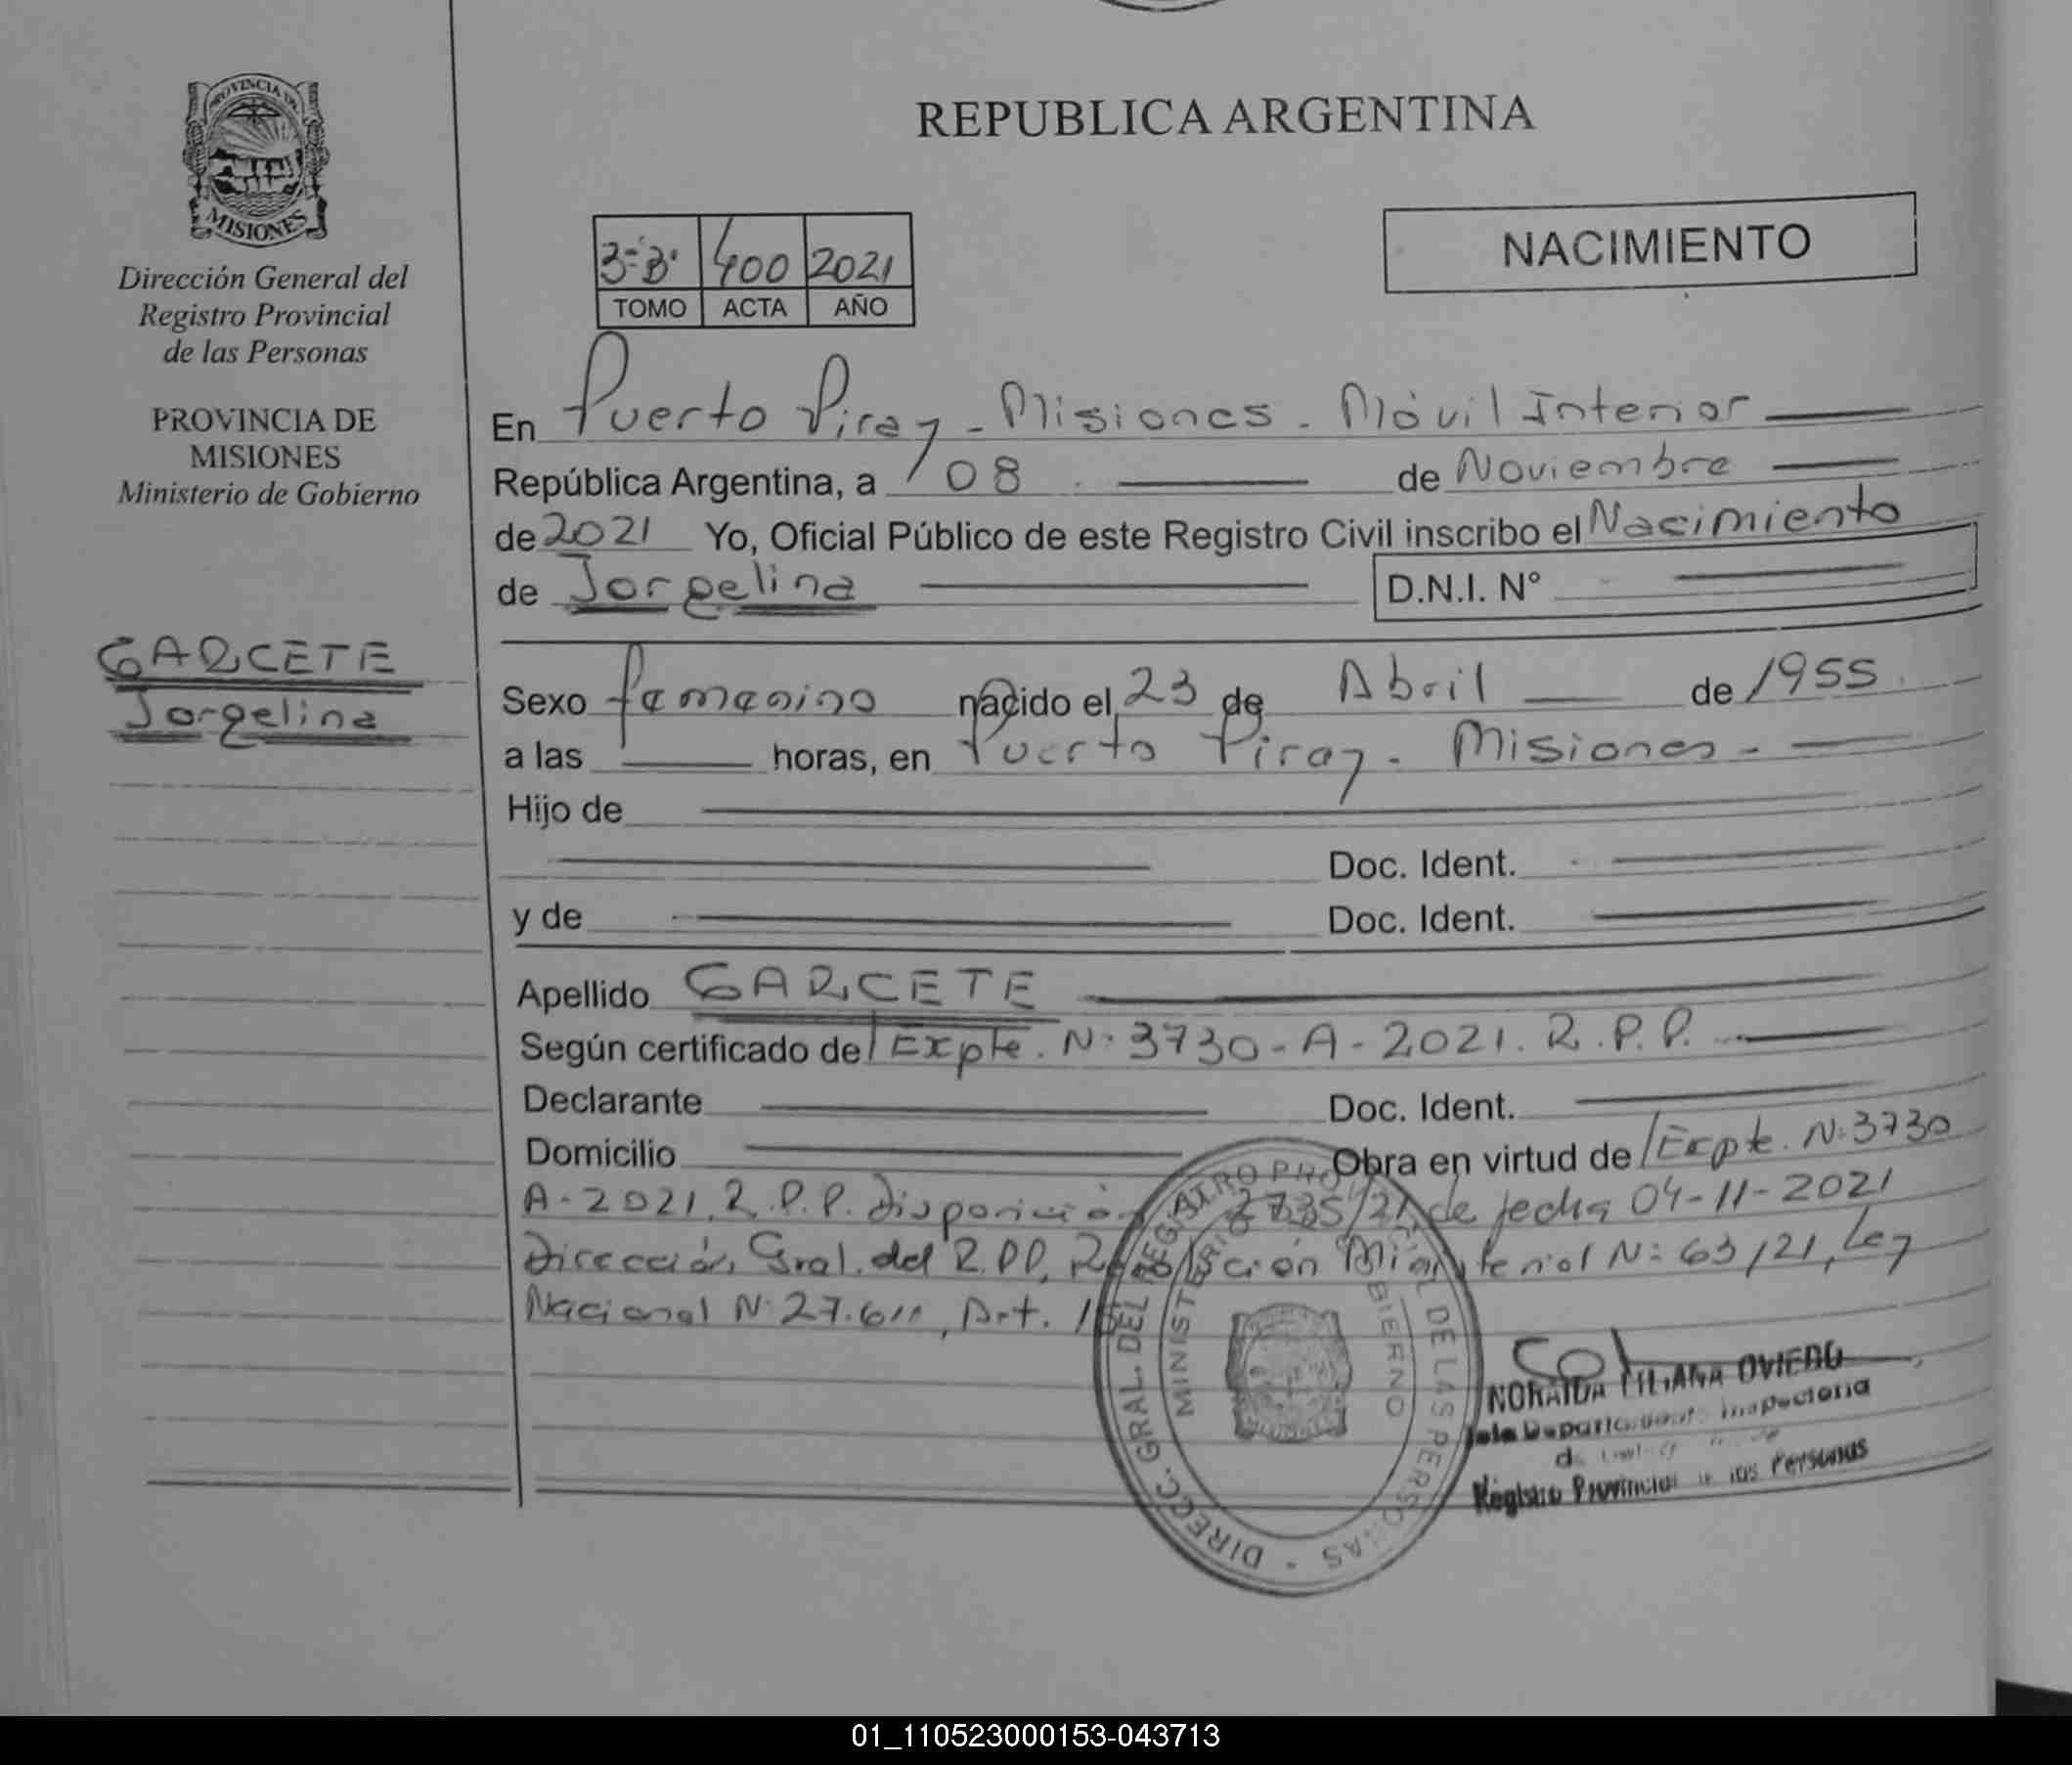 PROVINCIA DE
MISIONES
Dirección General del
Registro Provincial
de las Personas
PROVINCIA DE
MISIONES
Ministerio de Gobierno
GARCETE
Jorgelina
REPUBLICA ARGENTINA
NACIMIENTO
3-"B" 400 2021
TOMO ACTA AÑO
En Puerto Piray - Misiones - Móvil Interior
República Argentina, a 08 de Noviembre
de 2021 Yo, Oficial Público de este Registro Civil inscribo el Nacimiento
de Jorgelina D.N.I. N°
Sexo femenino nacido el 23 de Abril de 1955
a las horas, en Puerto Piray - Misiones -
Hijo de
Doc. Ident.
y de Doc. Ident.
Apellido GARCETE
Según certificado de Expte. N: 3730-A-2021. R.P.P.
Declarante Doc. Ident.
Domicilio Obra en virtud de Expte. N:3730
A-2021, R.P.P. Disposición 2735/21 de fecha 04-11-2021
Dirección Gral. del R.P.P, Resolución Ministerial N: 63/21, Ley
Nacional N: 27.611, Art.
DIRECC. GRAL. DEL REGISTRO PROVINCIAL DE LAS PERSONAS -
MINISTERIO GOBIERNO
NORAIDA LILIANA OVIEDO
Jefe Departamento Inspectoria
Registro Provincial de las Personas
01_110523000153-043713